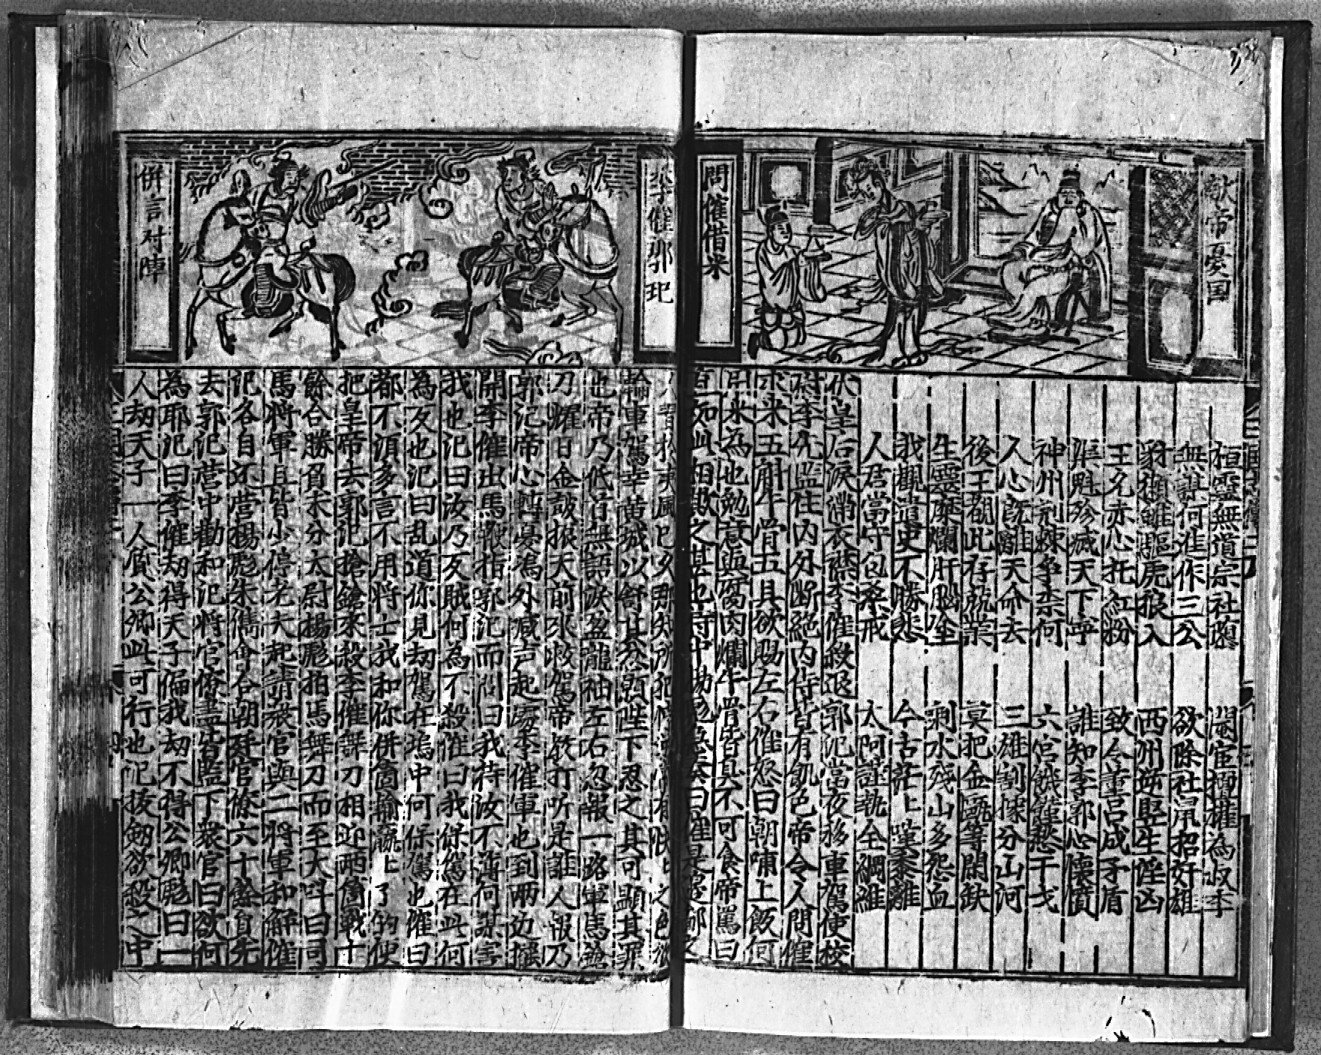 献帝憂国
問催借米
李催郭汜
併言对陣
桓靈無道宗社墮　閹宦擅權為叔季
無謀何進作三公　欲除社鼠招奸雄
豺獺雖驅虎狼入　西州逆豎生淫凶
王允赤心托紅粉　致令董呂成矛盾
渠魁殄滅天下寧　誰知李郭心懷憤
神州荊棘爭柰何　六宮饑饉愁干戈
人心既離天命去　三雄割據分山河
後王觀此存兢業　莫把金甌等閑缺
生靈糜爛肝腦塗　剩水殘山多怨血
我觀遺史不勝悲　今古茫上嘆黍離
人君當守包桑戒　太阿謹執全綱維
伏皇后淚滿衣襟李催殺退郭汜當夜移車駕使校
尉李先監住內外斷絕內侍皆有飢色帝令人問催
求米五斛牛骨五具欲賜左右催怒曰朝晡上飯何
用米為也勉意與腐肉爛牛骨皆臭不可食帝罵曰
輪車駕幸黃城以舒其忿願陛下忍之其可顯其罪
也帝乃低首無語淚盈龍袖左右忽報一路軍馬鎗
刀曜日金鼓振天前來救駕帝教打听是誰人報乃
郭汜帝心轉憂塢外喊声起處李催軍也到兩边擺
開李催出馬鞭指郭汜而罵曰我待汝不薄何謀害
我也汜曰汝乃反賊何為不殺催曰我保駕在此何
為反也汜曰乱道你見劫駕在塢中何保駕也催曰
都不須多言不用將士我和你併箇輸贏上了的便
把皇帝去郭汜搶鎗來殺李催舞刀相迎兩箇戰十
餘合勝負未分太尉楊彪拍馬舞刀而至大叫曰司
馬將軍且皆少停老夫起請衆官與二將軍和解催
汜各自还營楊彪朱儁會合朝廷官僚六十餘員先
去郭汜營中勸和汜將官僚盡皆監下衆官曰欲何
為耶汜曰李催劫得天子偏我劫不得公卿彪曰一
人劫天子一人質公卿此可行也汜拔劍欲殺之中